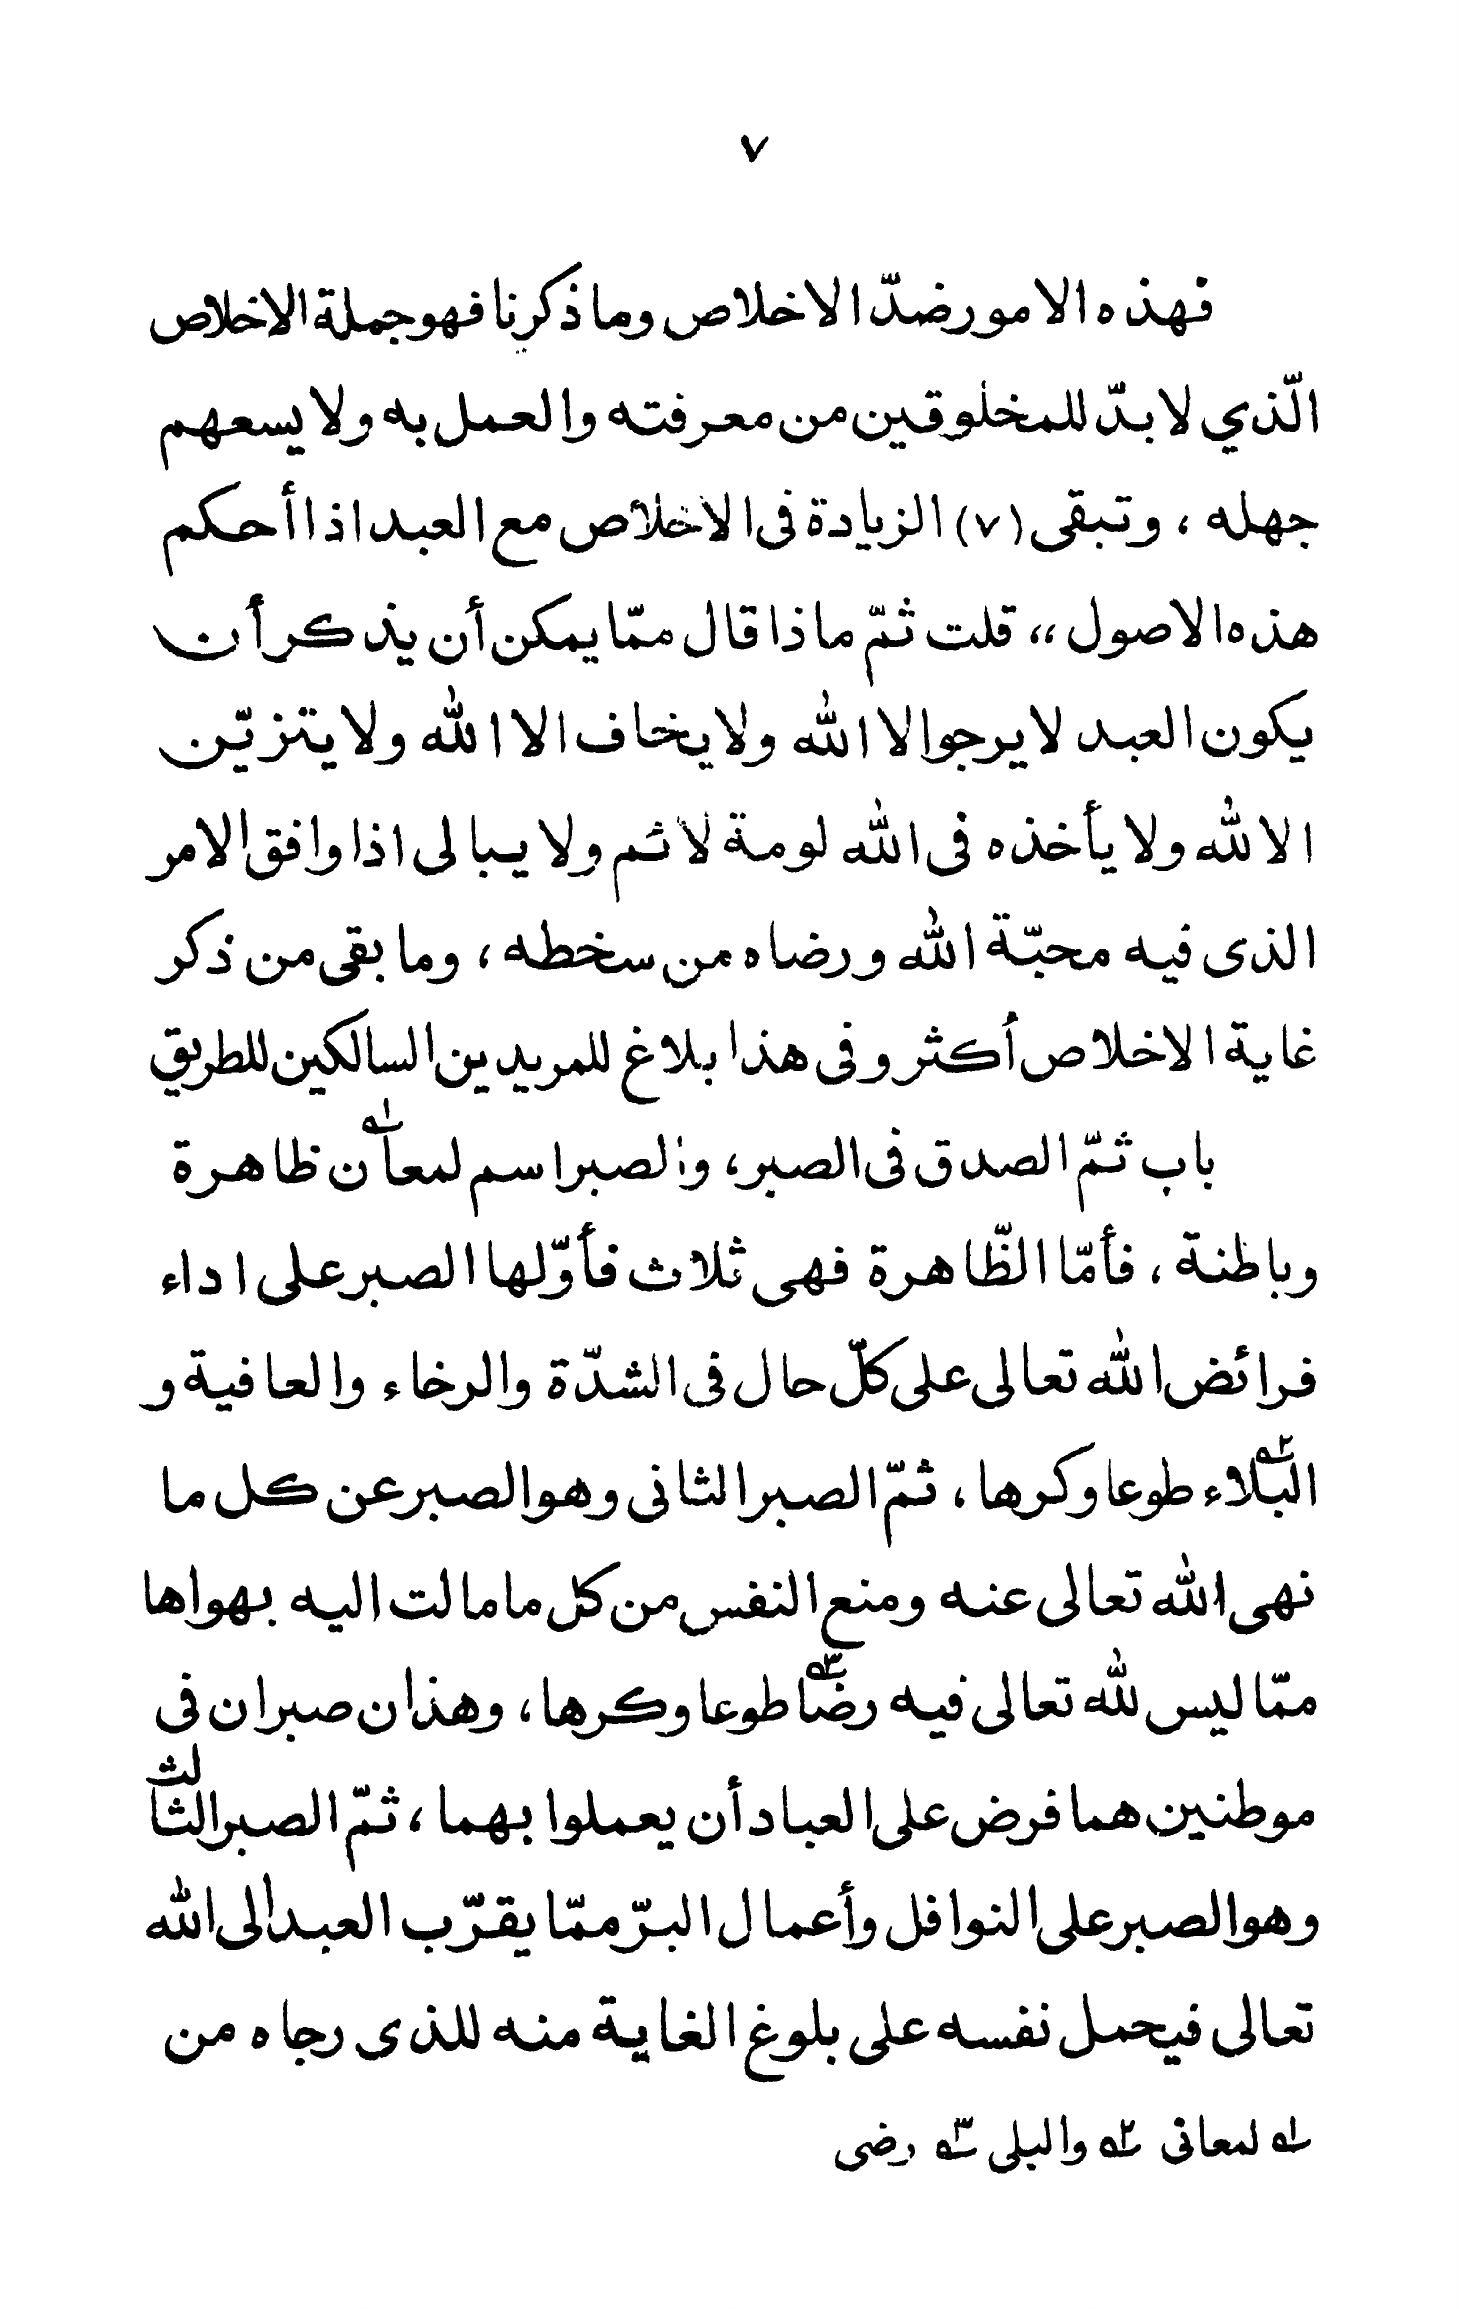 ٧
فهذه الامور ضدّ الاخلاص وما ذكرنا فهو جملة الاخلاص
الّذي لا بدّ للمخلوقين من معرفته والعمل به ولا يسعهم
جهله ، وتبقى (٧) الزيادة فى الاخلاص مع العبد اذا أحكم
هذه الاصول ،، قلت ثمّ ماذا قال ممّا يمكن أن يذكر أن
يكون العبد لا يرجو الا الله ولا يخاف الا الله ولا يتزيّن
الا لله ولا يأخذه فى الله لومة لائم ولا يبالى اذا وافق الامر
الذى فيه محبّة الله ورضاه من سخطه ، وما بقى من ذكر
غاية الاخلاص أكثر وفى هذا بلاغ للمريدين السالكين للطريق
باب ثمّ الصدق فى الصبر، والصبر اسم لمعان١ ظاهرة
وباطنة ، فأمّا الظّاهرة فهى ثلاث فأوّلها الصبر على اداء
فرائض الله تعالى على كلّ حال فى الشدّة والرخاء والعافية و
البلاء٢ طوعا وكرها ، ثمّ الصبر الثانى وهو الصبر عن كل ما
نهى الله تعالى عنه ومنع النفس من كل ما مالت اليه بهواها
ممّا ليس لله تعالى فيه رضا٣ طوعا وكرها ، وهذان صبران فى
موطنين هما فرض على العباد أن يعملوا بهما ، ثمّ الصبر الثالث
وهو الصبر على النوافل وأعمال البرّ ممّا يقرّب العبد الى الله
تعالى فيحمل نفسه على بلوغ الغاية منه للذى رجاه من
١ لمعانى ٢ والبلى ٣ رضى